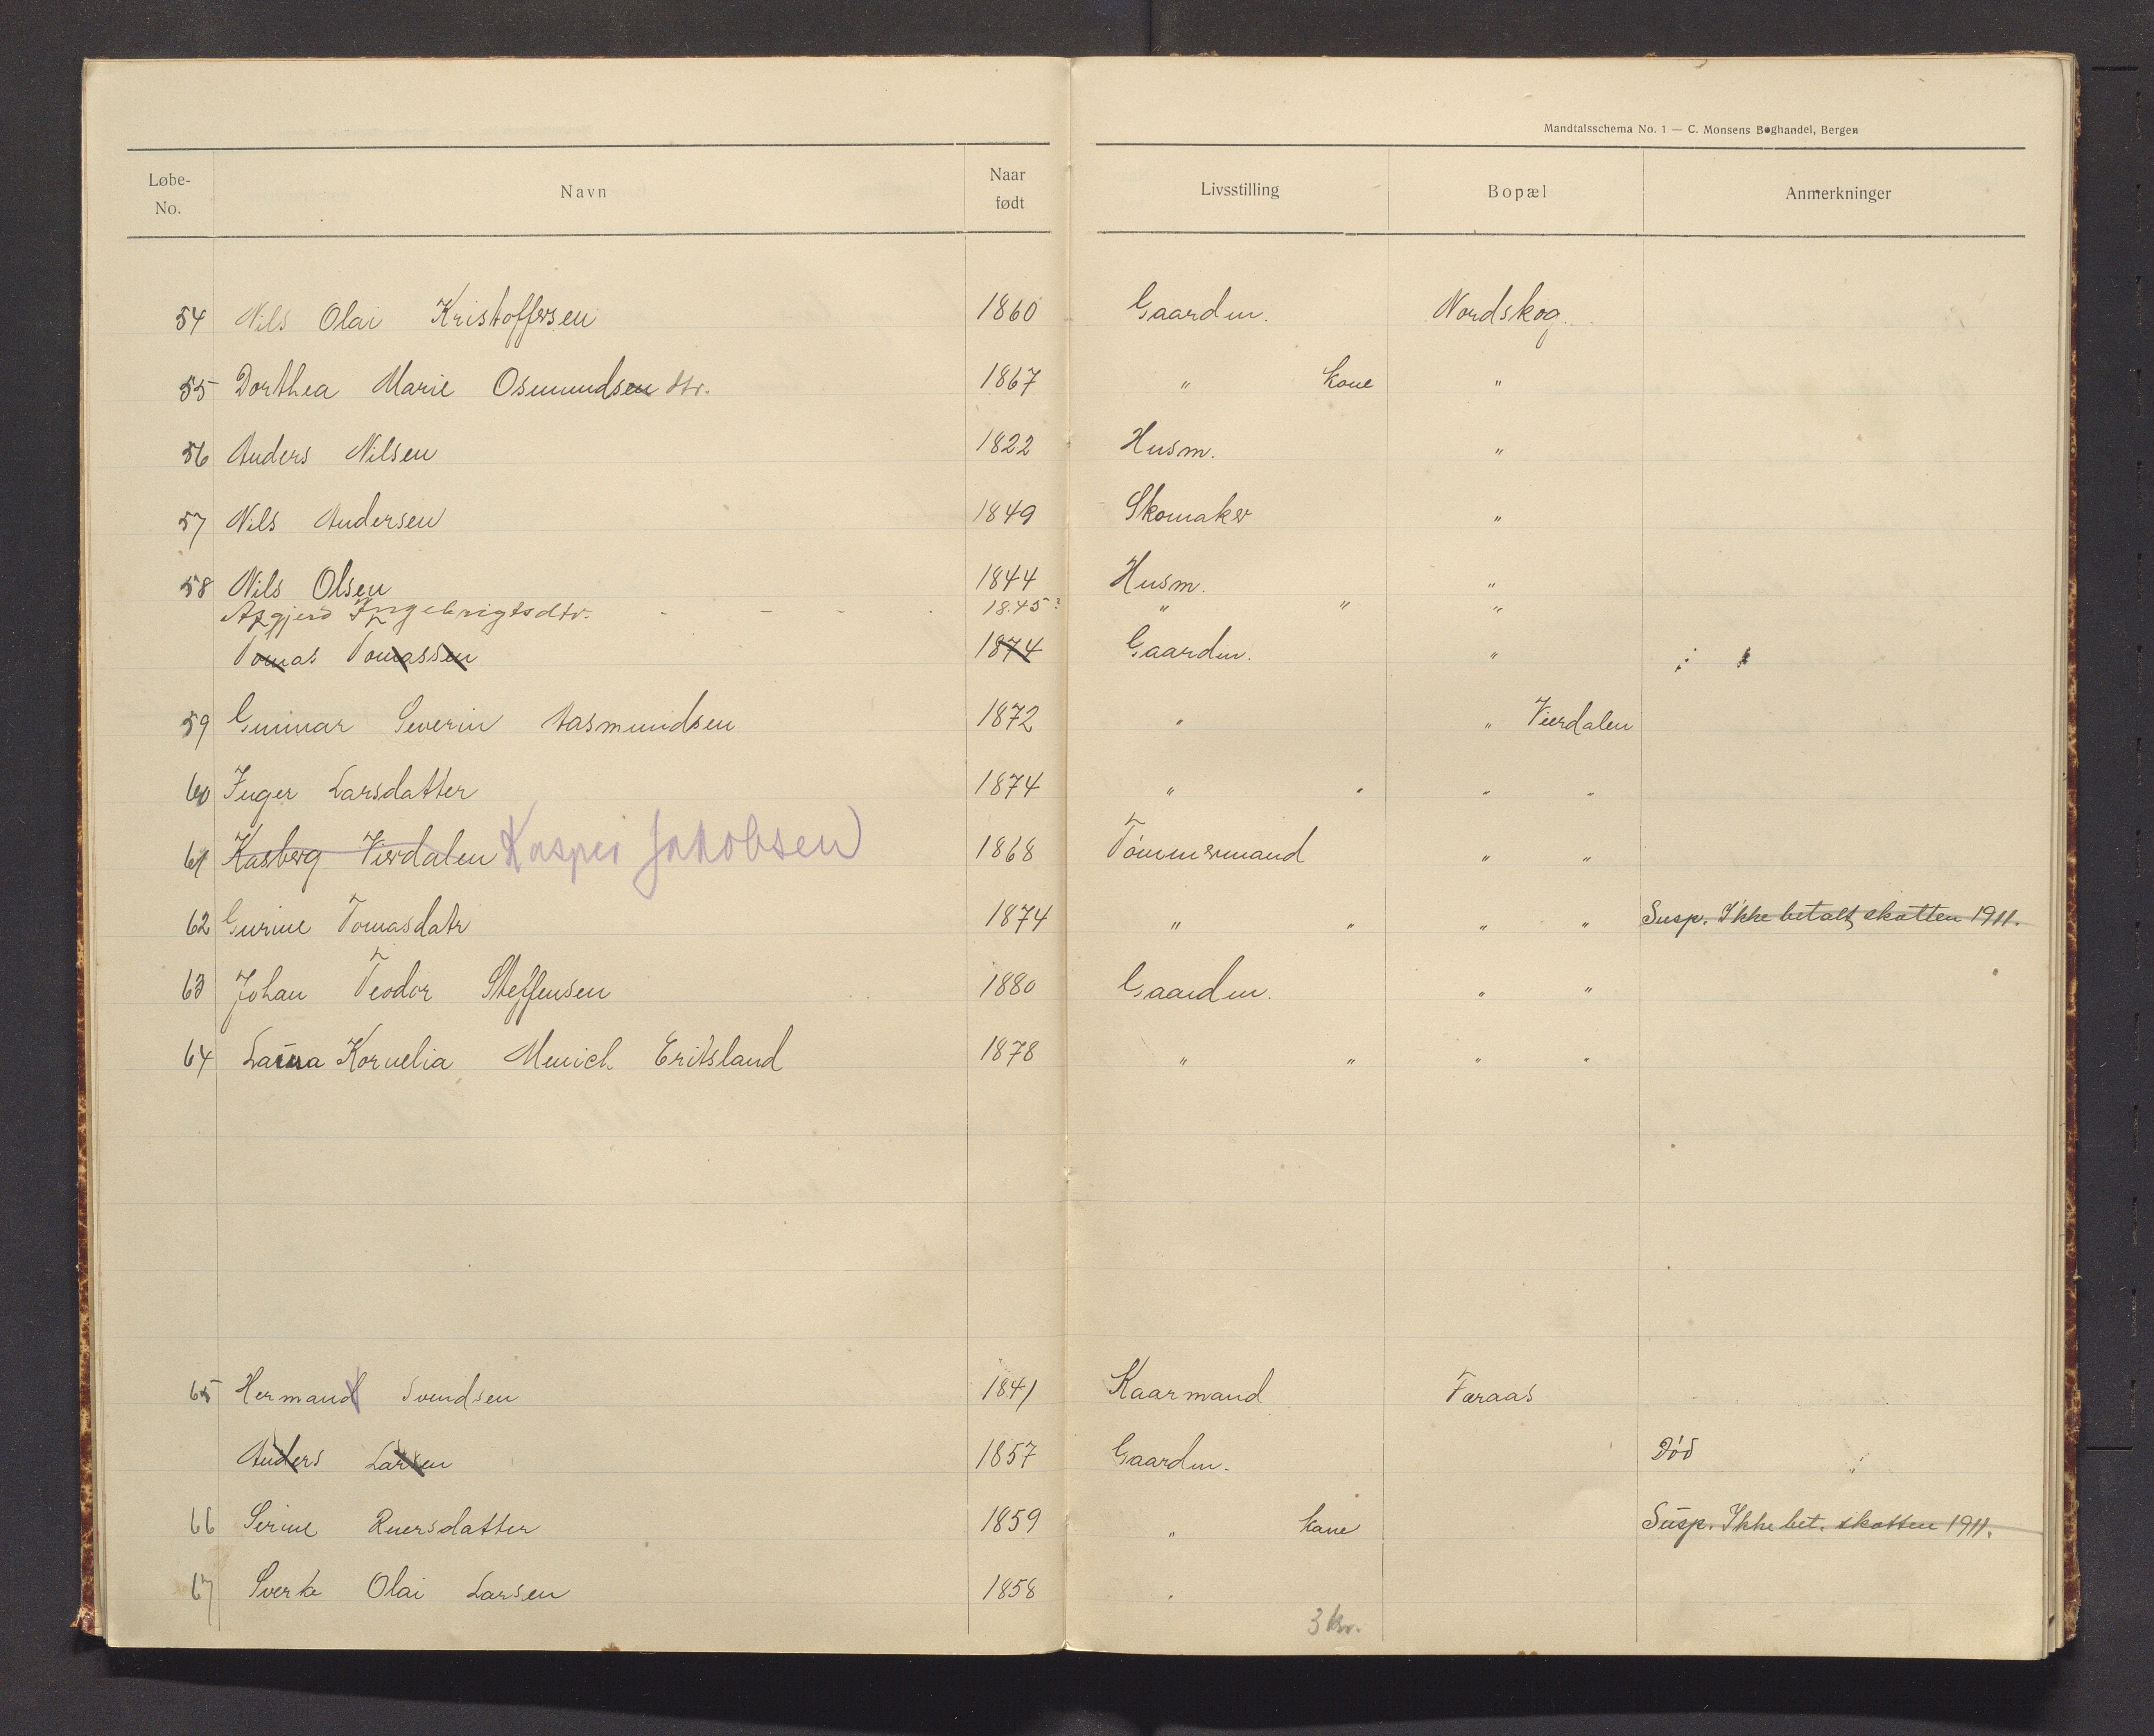 Mandtalsschema No. 1 — C. Monsens Boghandel, Bergen
Løbe-No. Navn Naar født Livsstilling Bopæl Anmerkninger
54 Nils Olai Kristoffersen 1860 Gaardm. Nordskog.
55 Dorthea Marie Osmundsen dtr. 1867 " kone "
56 Anders Nilsen 1822 Husm. "
57 Nils Andersen 1849 Skomaker "
58 Nils Olsen 1844 Husm. "
Azgjerd Ingebrigtsdtr. - - - 1845? " " "
Tomas Tomassen 1874 Gaardm. "
59 Gunnar Severin Aasmundsen 1872 " " Vierdalen
60 Inger Larsdatter 1874 " " " "
61 Kasberg Vierdalen Kasper Jakobsen 1868 Tömmermand " "
62 Gurine Tomasdatr 1874 " " " " Susp. Ikke betalt skatten 1911.
63 Johan Teodor Steffensen 1880 Gaardm. " "
64 Laura Kornelia Menich Eritsland 1878 " " " "
65 Hermand Svendsen 1841 Kaarmand Færaas
Anders Larsen 1857 Gaardm. Död
66 Serine Rersdatter 1859 " kone Susp. Ikke bet. skatten 1911.
67 Sverke Olai Larsen 1858 "
3 kr.